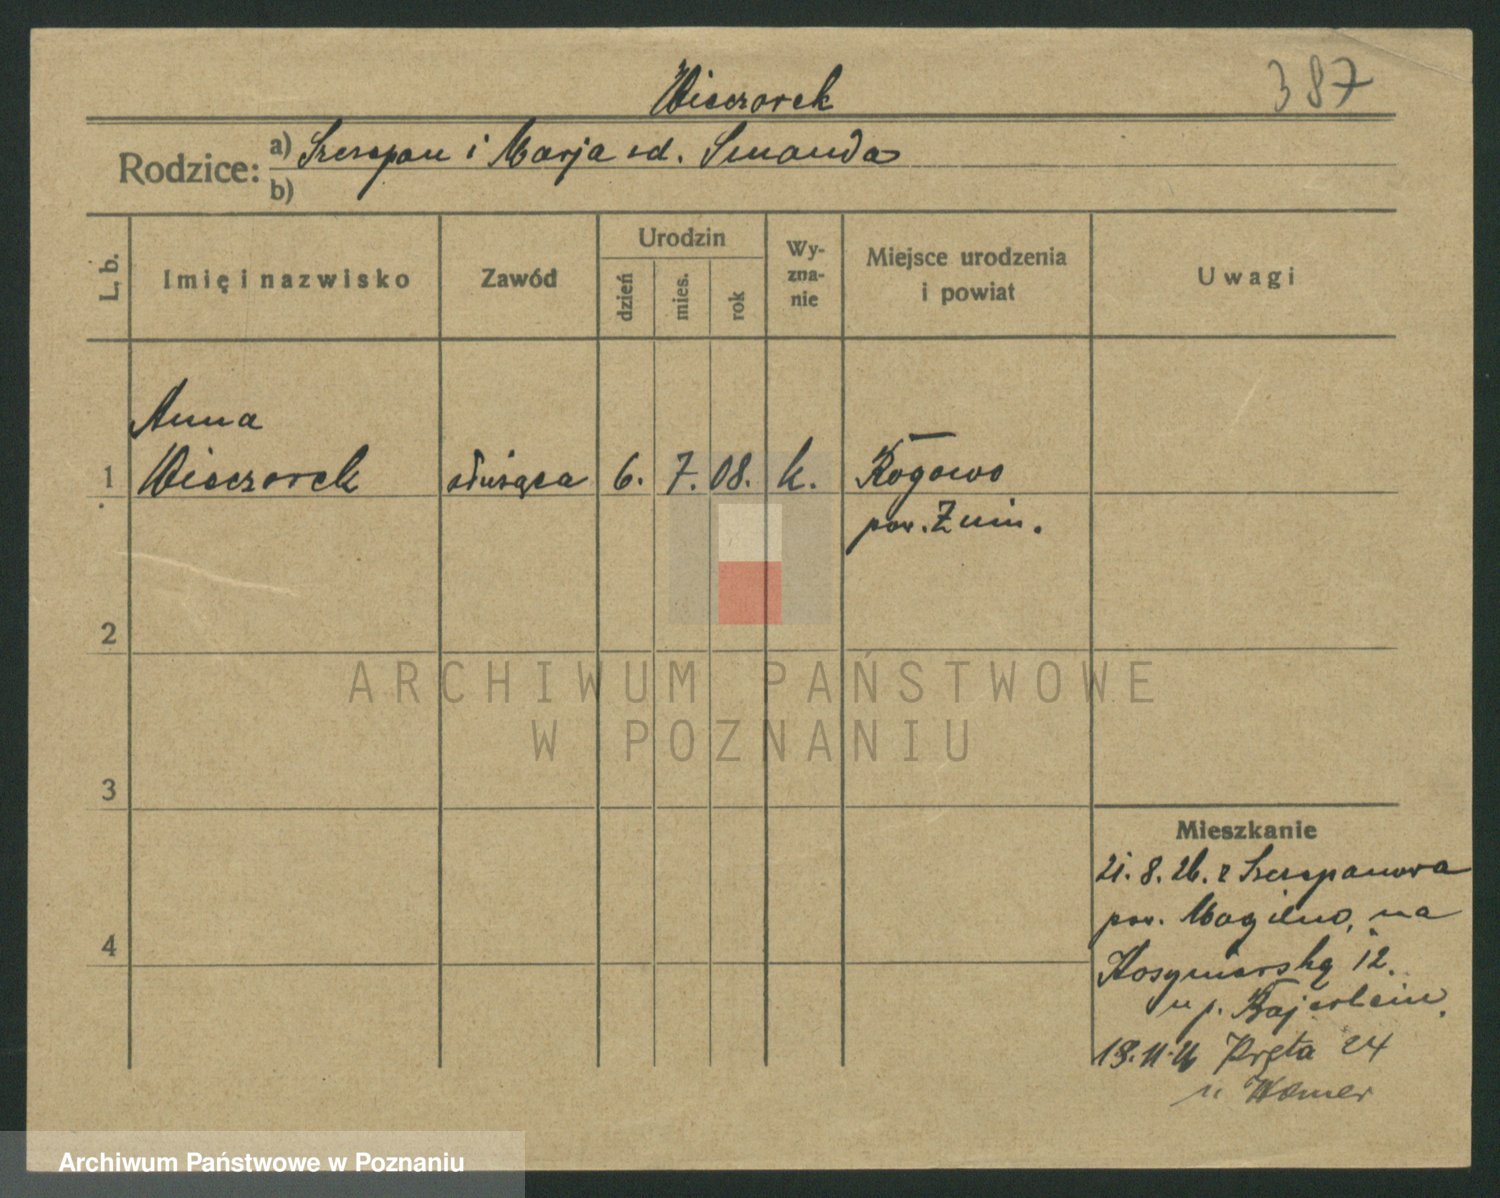 Wieczorek
387
Rodzice: a) Szczepan i Marja zd. Smanda
b)
L. b.
Imię i nazwisko
Zawód
Urodzin
dzień
mies.
rok
Wy-
zna-
nie
Miejsce urodzenia
i powiat
Uwagi
Anna
1 Wieczorek służąca 6. 7. 08. k. Rogowo
pow. Żnin.
2
3
4
Mieszkanie
21. 8. 26. z Szczepanowa
pow. Mogilno, na
12.
u p. Bajerlein.
13. 11. 26 Kręta 24
u
ARCHIWUM PAŃSTWOWE
W POZNANIU
Archiwum Państwowe w Poznaniu